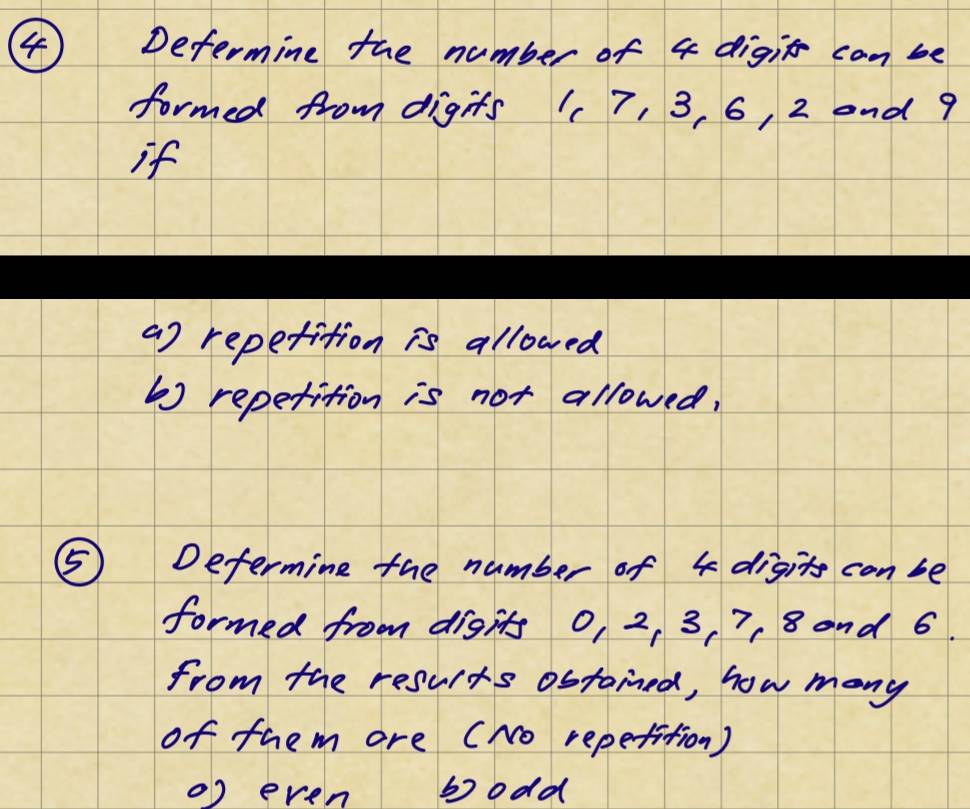 4 Determine the number of 4 digits can be
formed from digits 1, 7, 3, 6, 2 and 9
if
a) repetition is allowed
b) repetition is not allowed.
5 Determine the number of 4 digits can be
formed from digits 0, 2, 3, 7, 8 and 6.
From the results obtained, how many
of them are (No repetition)
a) even b) odd